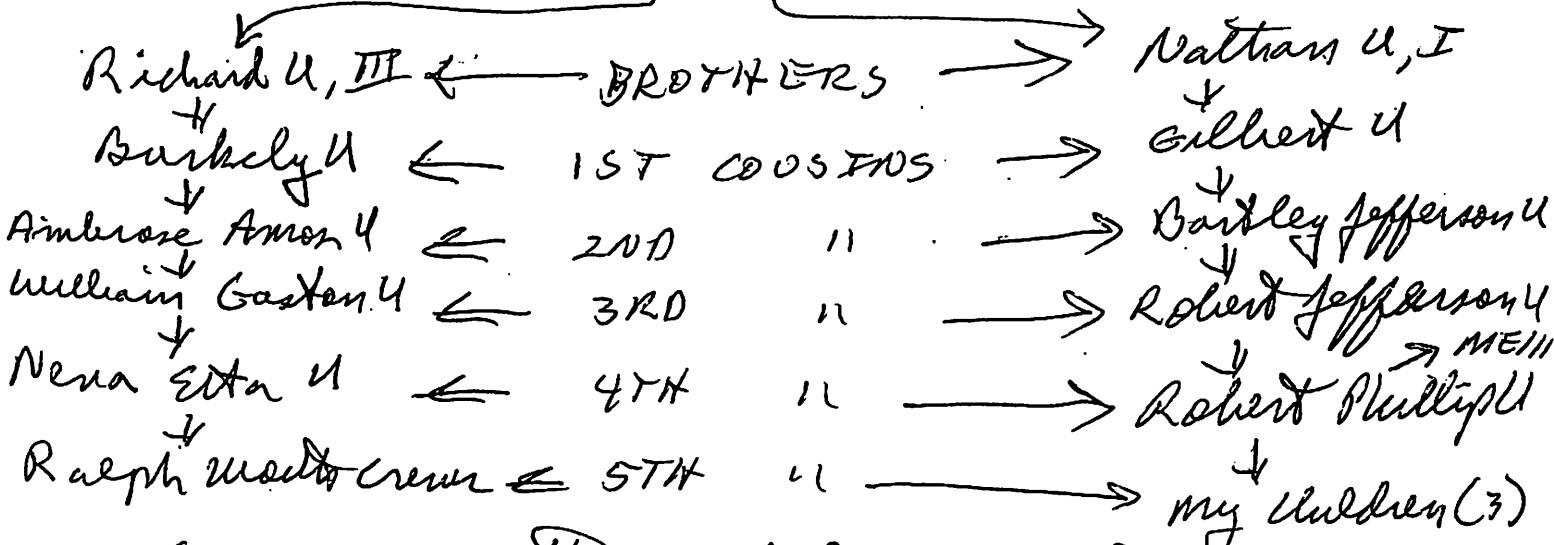 Richard U, III ← BROTHERS → Nathan U, I
Barkely U ← 1ST COUSINS → Gilbert U
Ambrose Amos U ← 2ND " → Bartley Jefferson U
William Gaston U ← 3RD " → Robert Jefferson U
→ ME!!!
Nena Etta U ← 4TH " → Robert Phillip U
Ralph ← 5TH " → My Children (3)